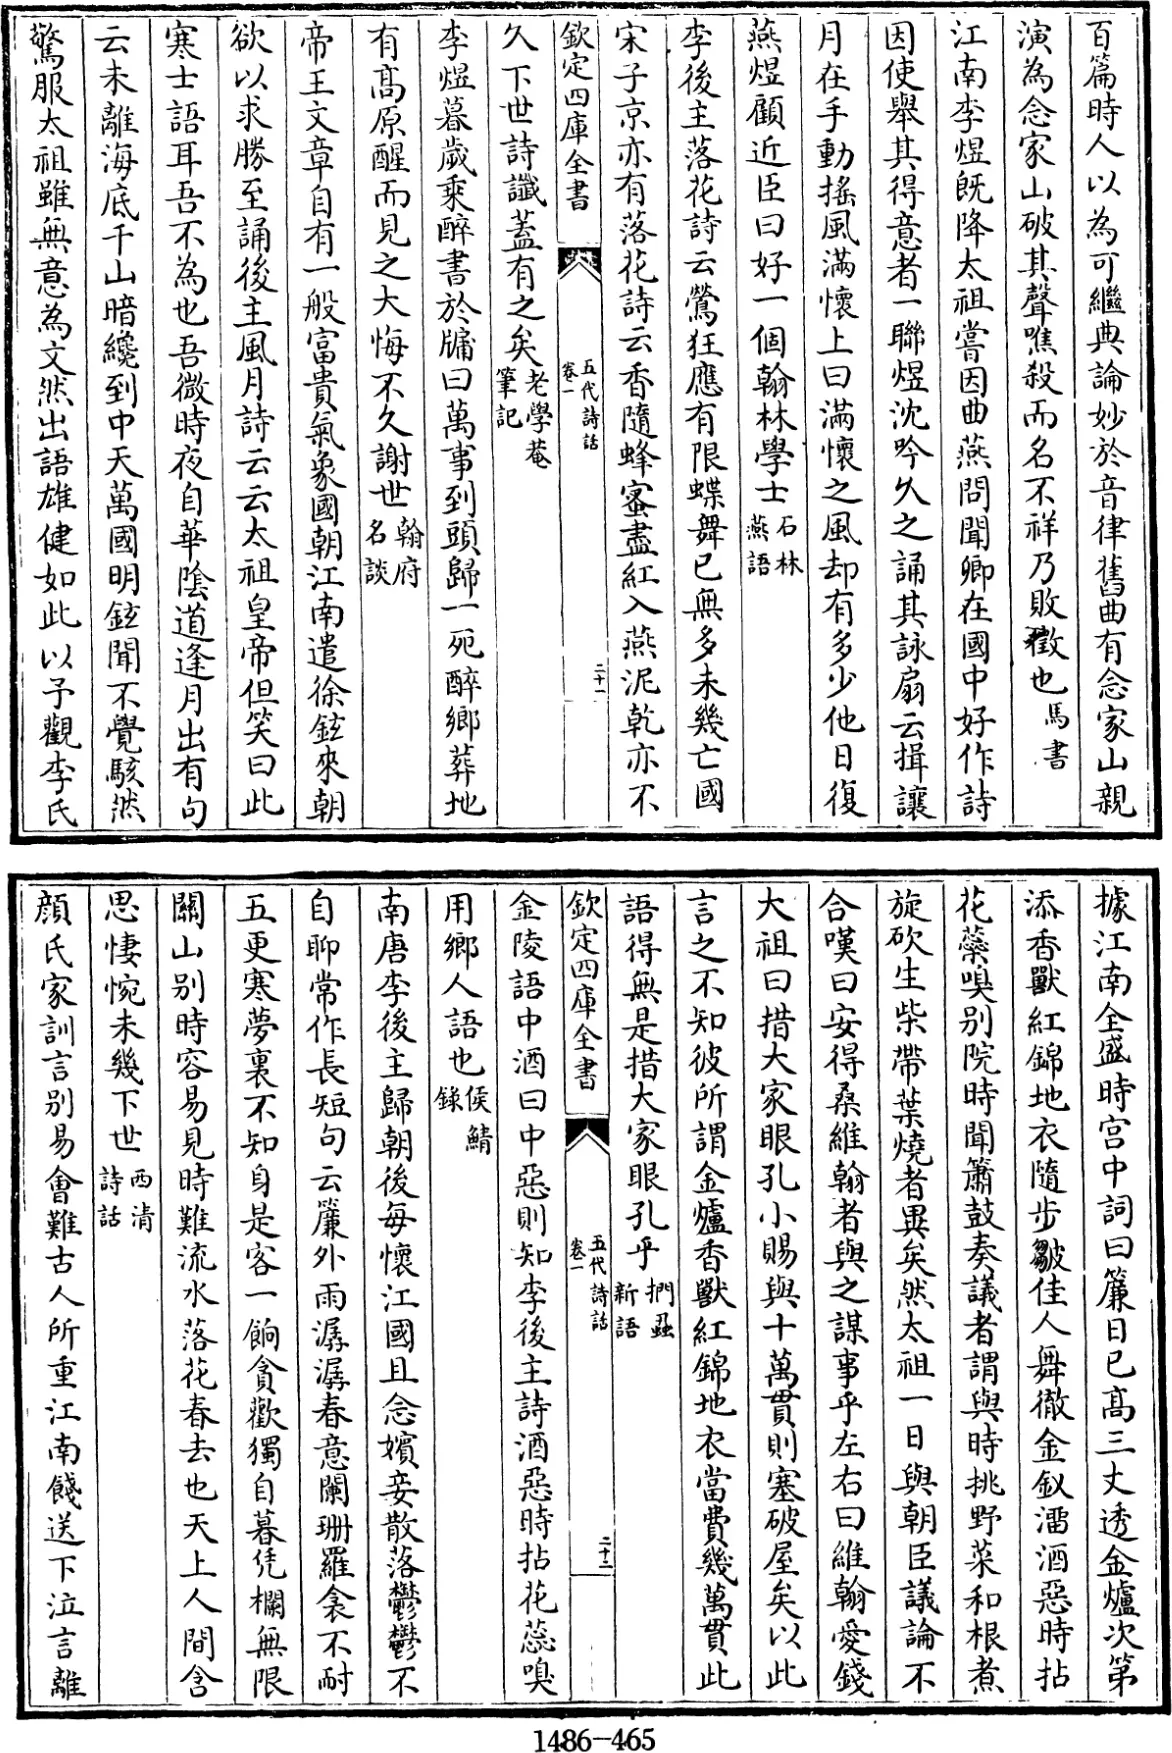 百篇時人以為可繼典論妙於音律舊曲有念家山親
演為念家山破其聲噍殺而名不祥乃敗徵也馬書
江南李煜旣降太祖嘗因曲燕問聞卿在國中好作詩
因使舉其得意者一聯煜沈吟久之誦其詠扇云揖讓
月在手動搖風滿懷上曰滿懷之風却有多少他日復
燕煜顧近臣曰好一個翰林學士石林燕語
李後主落花詩云鶯狂應有限蝶舞已無多未幾亡國
宋子京亦有落花詩云香隨蜂蜜盡紅入燕泥乾亦不
欽定四庫全書 五代詩話卷一 二十一
久下世詩讖蓋有之矣老學菴筆記
李煜暮歲乘醉書於牖曰萬事到頭歸一死醉鄉葬地
有高原醒而見之大悔不久謝世翰府名談
帝王文章自有一般富貴氣象國朝江南遣徐鉉來朝
欲以求勝至誦後主風月詩云云太祖皇帝但笑曰此
寒士語耳吾不為也吾微時夜自華陰道逢月出有句
云未離海底千山暗纔到中天萬國明鉉聞不覺駭然
驚服太祖雖無意為文然出語雄健如此以予觀李氏
據江南全盛時宮中詞曰簾日已高三丈透金爐次第
添香獸紅錦地衣隨步皺佳人舞徹金釵溜酒惡時拈
花蘂嗅别院時聞簫鼓奏議者謂與時挑野菜和根煮
旋砍生柴帶葉燒者異矣然太祖一日與朝臣議論不
合嘆曰安得桑維翰者與之謀事乎左右曰維翰愛錢
大祖曰措大家眼孔小賜與十萬貫則塞破屋矣以此
言之不知彼所謂金爐香獸紅錦地衣當費幾萬貫此
語得無是措大家眼孔乎捫蝨新語
欽定四庫全書 五代詩話卷一 二十二
金陵語中酒曰中惡則知李後主詩酒惡時拈花蕊嗅
用鄉人語也侯鯖錄
南唐李後主歸朝後每懷江國且念嬪妾散落鬱鬱不
自聊常作長短句云簾外雨潺潺春意闌珊羅衾不耐
五更寒夢裏不知身是客一餉貪歡獨自暮凭欄無限
關山别時容易見時難流水落花春去也天上人間含
思悽惋未幾下世西清詩話
顔氏家訓言别易會難古人所重江南餞送下泣言離
1486-465